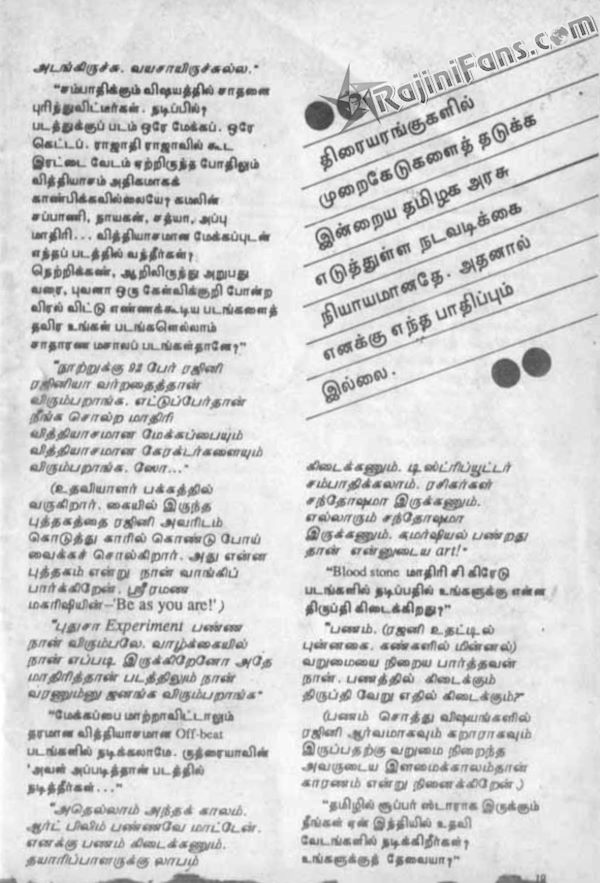 RajiniFans.com
அடங்கிருச்சு. வயசாயிருச்சுல்ல."
"சம்பாதிக்கும் விஷயத்தில் சாதனை
புரிந்துவிட்டீர்கள். நடிப்பில்?
படத்துக்குப் படம் ஒரே மேக்கப். ஒரே
கெட்டப். ராஜாதி ராஜாவில் கூட
இரட்டை வேடம் ஏற்றிருந்த போதிலும்
வித்தியாசம் அதிகமாகக்
காண்பிக்கவில்லையே? கமலின்
சப்பாணி, நாயகன், சத்யா, அப்பு
மாதிரி... வித்தியாசமான மேக்கப்புடன்
எந்தப் படத்தில் வந்தீர்கள்?
நெற்றிக்கண், ஆறிலிருந்து அறுபது
வரை, புவனா ஒரு கேள்விக்குறி போன்ற
விரல் விட்டு எண்ணக்கூடிய படங்களைத்
தவிர உங்கள் படங்களெல்லாம்
சாதாரண மசாலப் படங்கள்தானே?"
"நூற்றுக்கு 92 பேர் ரஜினி
ரஜினியா வர்றதைத்தான்
விரும்பறாங்க. எட்டுப்பேர்தான்
நீங்க சொல்ற மாதிரி
வித்தியாசமான மேக்கப்பையும்
வித்தியாசமான கேரக்டர்களையும்
விரும்பறாங்க. ஸோ..."
(உதவியாளர் பக்கத்தில்
வருகிறார். கையில் இருந்த
புத்தகத்தை ரஜினி அவரிடம்
கொடுத்து காரில் கொண்டு போய்
வைக்கச் சொல்கிறார். அது என்ன
புத்தகம் என்று நான் வாங்கிப்
பார்க்கிறேன். ஸ்ரீரமண
மகரிஷியின்–'Be as you are!')
"புதுசா Experiment பண்ண
நான் விரும்பலே. வாழ்க்கையில்
நான் எப்படி இருக்கிறேனோ அதே
மாதிரித்தான் படத்திலும் நான்
வரணும்னு ஜனங்க விரும்பறாங்க"
"மேக்கப்பை மாற்றாவிட்டாலும்
தரமான வித்தியாசமான Off-beat
படங்களில் நடிக்கலாமே. ருத்ரையாவின்
'அவள் அப்படித்தான் படத்தில்
நடித்தீர்கள்..."
"அதெல்லாம் அந்தக் காலம்.
ஆர்ட் பிலிம் பண்ணவே மாட்டேன்.
எனக்கு பணம் கிடைக்கணும்.
தயாரிப்பாளருக்கு லாபம்
திரையரங்குகளில்
முறைகேடுகளைத் தடுக்க
இன்றைய தமிழக அரசு
எடுத்துள்ள நடவடிக்கை
நியாயமானதே. அதனால்
எனக்கு எந்த பாதிப்பும்
இல்லை.
கிடைக்கணும். டிஸ்ட்ரிப்யூட்டர்
சம்பாதிக்கலாம். ரசிகர்கள்
சந்தோஷமா இருக்கணும்.
எல்லாரும் சந்தோஷமா
இருக்கணும். கமர்ஷியல் பண்றது
தான் என்னுடைய art!"
"Blood stone மாதிரி சி கிரேடு
படங்களில் நடிப்பதில் உங்களுக்கு என்ன
திருப்தி கிடைக்கிறது?"
"பணம். (ரஜனி உதட்டில்
புன்னகை. கண்களில் மின்னல்)
வறுமையை நிறைய பார்த்தவன்
நான். பணத்தில் கிடைக்கும்
திருப்தி வேறு எதில் கிடைக்கும்?"
(பணம் சொத்து விஷயங்களில்
ரஜினி ஆர்வமாகவும் கறாராகவும்
இருப்பதற்கு வறுமை நிறைந்த
அவருடைய இளமைக்காலம்தான்
காரணம் என்று நினைக்கிறேன்.)
"தமிழில் சூப்பர் ஸ்டாராக இருக்கும்
நீங்கள் ஏன் இந்தியில் உதவி
வேடங்களில் நடிக்கிறீர்கள்?
உங்களுக்குத் தேவையா?"